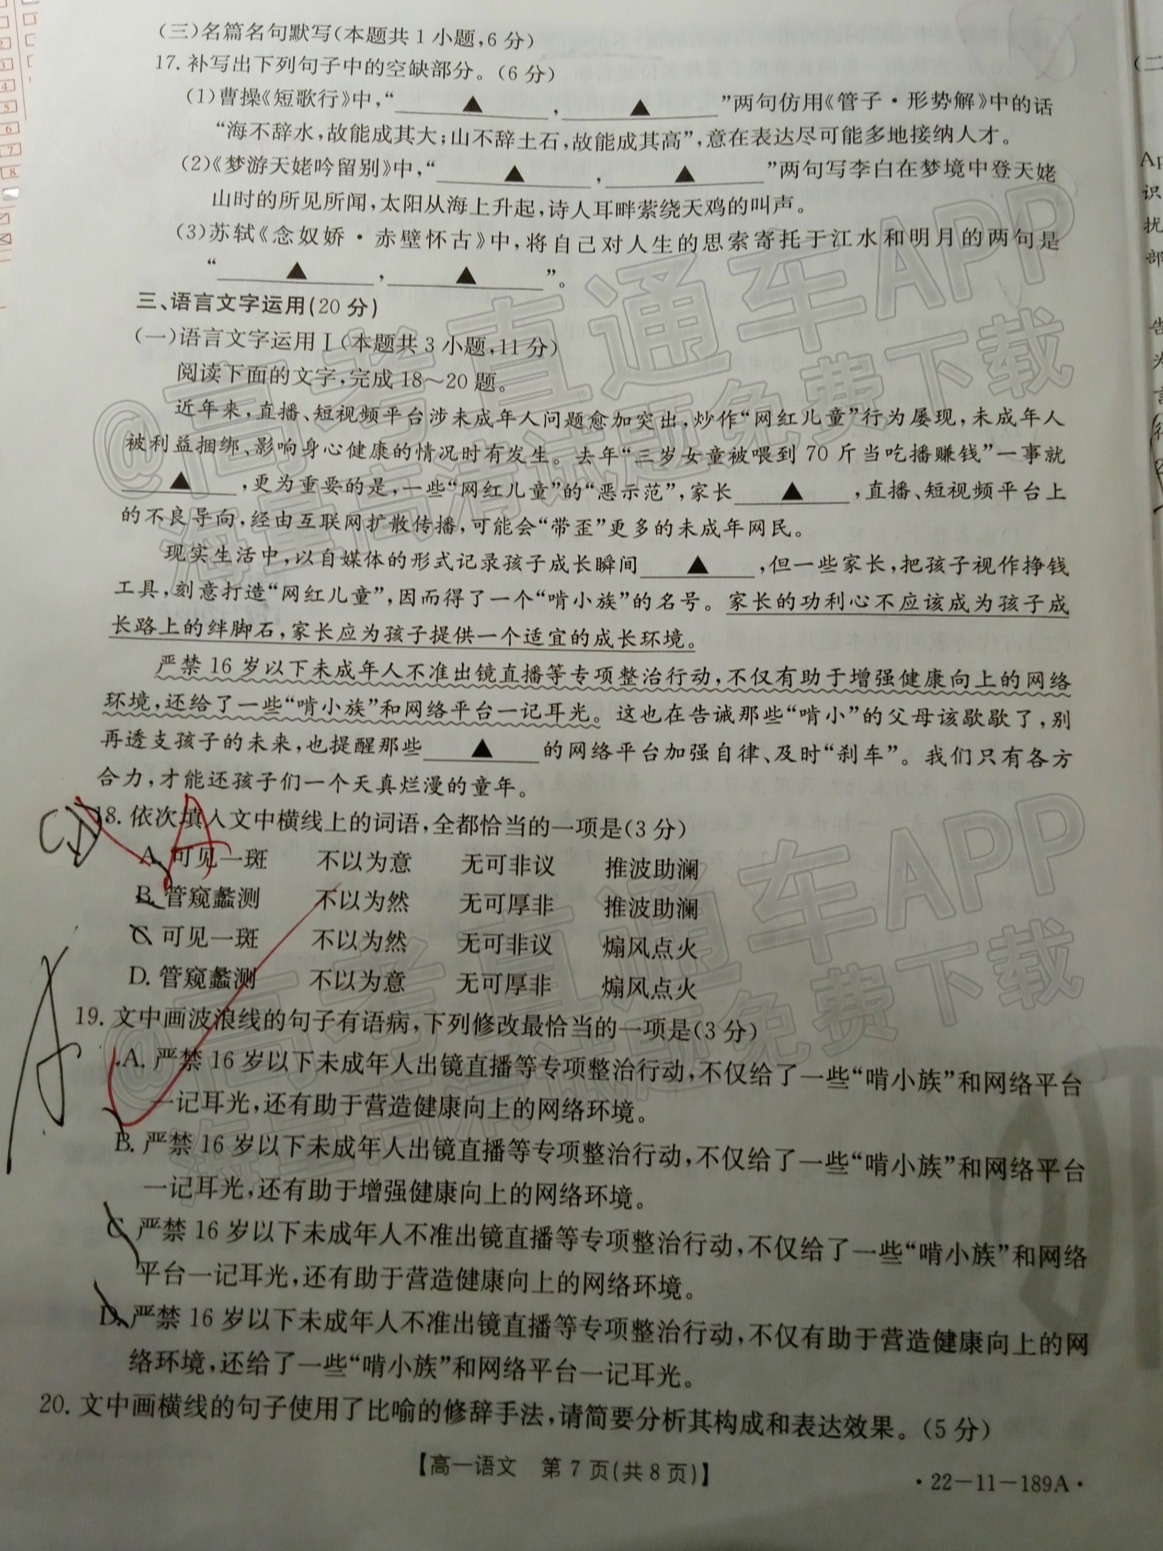 (三)名篇名句默写(本题共1小题,6分)
17.补写出下列句子中的空缺部分。(6分)
(1)曹操《短歌行》中,“▲,▲”两句仿用《管子·形势解》中的话
“海不辞水,故能成其大;山不辞土石,故能成其高”,意在表达尽可能多地接纳人才。
(2)《梦游天姥吟留别》中,“▲,▲”两句写李白在梦境中登天姥
山时的所见所闻,太阳从海上升起,诗人耳畔萦绕天鸡的叫声。
(3)苏轼《念奴娇·赤壁怀古》中,将自己对人生的思索寄托于江水和明月的两句是
“▲,▲”。
三、语言文字运用(20分)
(一)语言文字运用Ⅰ(本题共3小题,11分)
阅读下面的文字,完成18~20题。
近年来,直播、短视频平台涉未成年人问题愈加突出,炒作“网红儿童”行为屡现,未成年人
被利益捆绑、影响身心健康的情况时有发生。去年“三岁女童被喂到70斤当吃播赚钱”一事就
▲,更为重要的是,一些“网红儿童”的“恶示范”,家长▲,直播、短视频平台上
的不良导向,经由互联网扩散传播,可能会“带歪”更多的未成年网民。
现实生活中,以自媒体的形式记录孩子成长瞬间▲,但一些家长,把孩子视作挣钱
工具,刻意打造“网红儿童”,因而得了一个“啃小族”的名号。家长的功利心不应该成为孩子成
长路上的绊脚石,家长应为孩子提供一个适宜的成长环境。
严禁16岁以下未成年人不准出镜直播等专项整治行动,不仅有助于增强健康向上的网络
环境,还给了一些“啃小族”和网络平台一记耳光。这也在告诫那些“啃小”的父母该歇歇了,别
再透支孩子的未来,也提醒那些▲的网络平台加强自律、及时“刹车”。我们只有各方
合力,才能还孩子们一个天真烂漫的童年。
18.依次填入文中横线上的词语,全都恰当的一项是(3分)
A.可见一斑 不以为意 无可非议 推波助澜
B.管窥蠡测 不以为然 无可厚非 推波助澜
C.可见一斑 不以为然 无可非议 煽风点火
D.管窥蠡测 不以为意 无可厚非 煽风点火
19.文中画波浪线的句子有语病,下列修改最恰当的一项是(3分)
A.严禁16岁以下未成年人出镜直播等专项整治行动,不仅给了一些“啃小族”和网络平台
一记耳光,还有助于营造健康向上的网络环境。
B.严禁16岁以下未成年人出镜直播等专项整治行动,不仅给了一些“啃小族”和网络平台
一记耳光,还有助于增强健康向上的网络环境。
C.严禁16岁以下未成年人不准出镜直播等专项整治行动,不仅给了一些“啃小族”和网络
平台一记耳光,还有助于营造健康向上的网络环境。
D.严禁16岁以下未成年人不准出镜直播等专项整治行动,不仅有助于营造健康向上的网
络环境,还给了一些“啃小族”和网络平台一记耳光。
20.文中画横线的句子使用了比喻的修辞手法,请简要分析其构成和表达效果。(5分)
【高一语文 第7页(共8页)】
·22-11-189A·
A
A
@高考直通车APP
海量高清试题免费下载
@高考直通车APP
海量高清试题免费下载